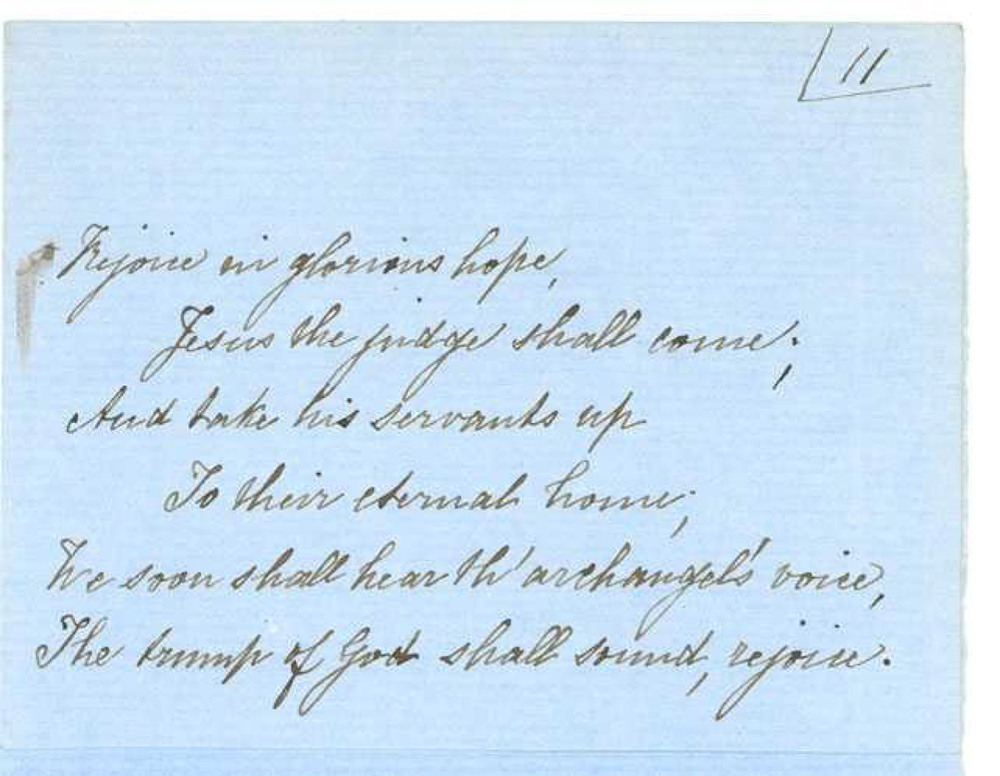 11
Rejoice in glorious hope,
Jesus the judge shall come;
And take his servants up
To their eternal home;
We soon shall hear th' archangel's voice,
The trump of God shall sound, rejoice.